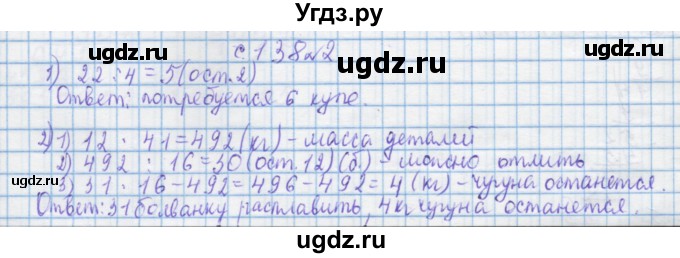 Угдз.ру
с. 138 №2
1) 22 : 4 = 5 (ост. 2)
Ответ: потребуется 6 купе.
2) 1) 12 · 41 = 492 (кг) - масса деталей
2) 492 : 16 = 30 (ост. 12) (б.) - можно отлить
3) 31 · 16 - 492 = 496 - 492 = 4 (кг) - чугуна останется.
Ответ: 31 болванку расплавить, 4 кг чугуна останется.
ugdz.ru
ugdz.ru
ugdz.ru
ugdz.ru
ugdz.ru
ugdz.ru
ugdz.ru
ugdz.ru
ugdz.ru